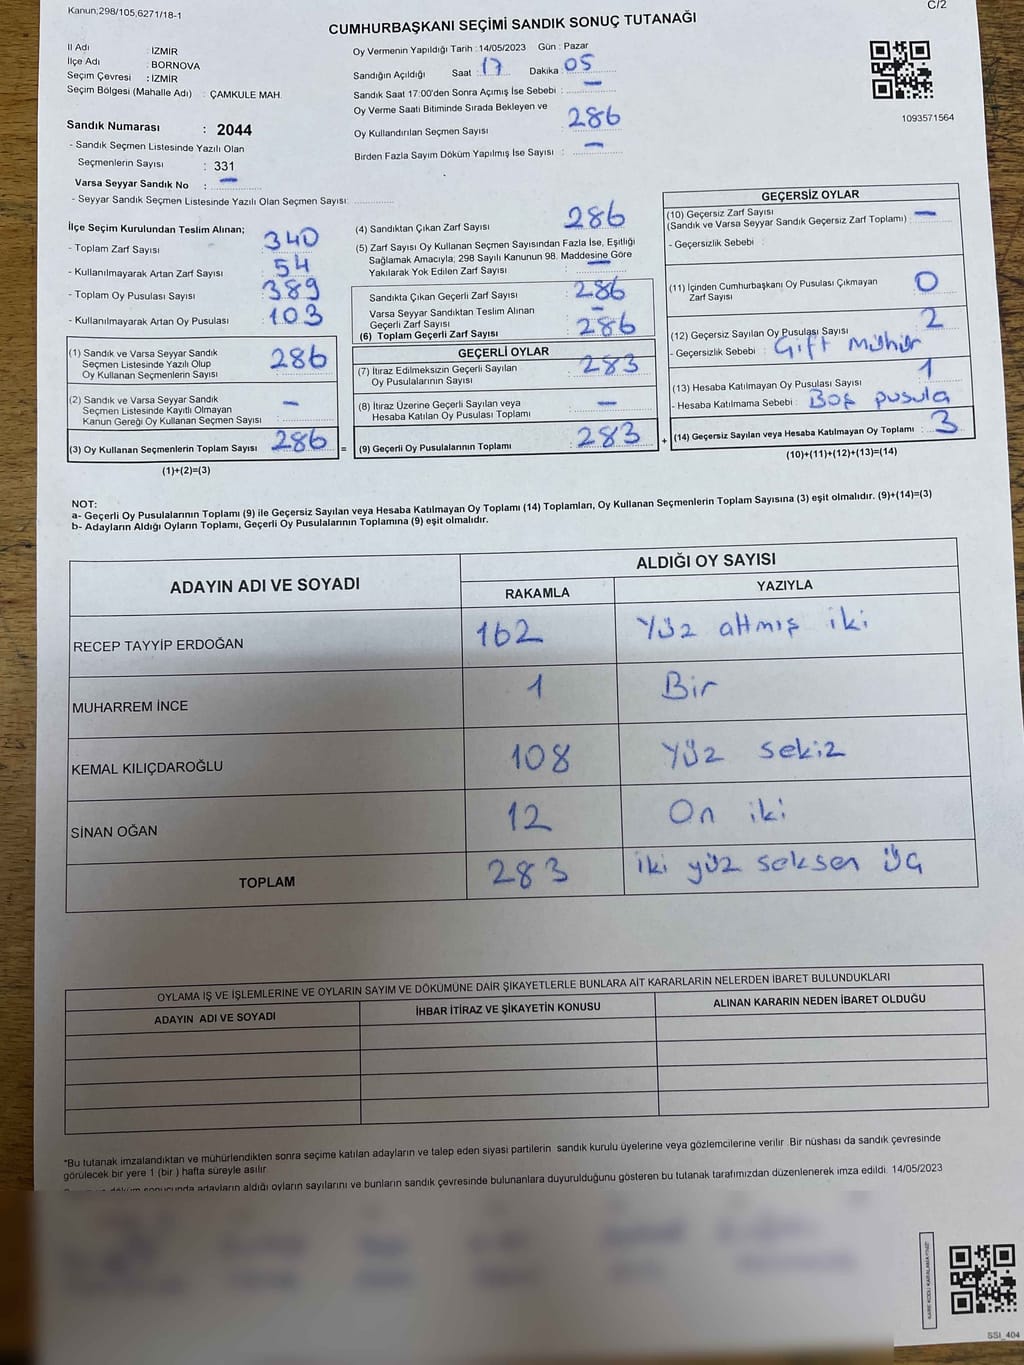 Kanun,298/105,6271/18-1
C/2
CUMHURBAŞKANI SEÇİMİ SANDIK SONUÇ TUTANAĞI
İl Adı : İZMİR
İlçe Adı : BORNOVA
Seçim Çevresi : İZMİR
Seçim Bölgesi (Mahalle Adı) : ÇAMKULE MAH.
Sandık Numarası : 2044
- Sandık Seçmen Listesinde Yazılı Olan
Seçmenlerin Sayısı : 331
Varsa Seyyar Sandık No : —
- Seyyar Sandık Seçmen Listesinde Yazılı Olan Seçmen Sayısı:
Oy Vermenin Yapıldığı Tarih : 14/05/2023 Gün : Pazar
Sandığın Açıldığı Saat : 17 Dakika : 05
Sandık Saat 17:00'den Sonra Açımış İse Sebebi : —
Oy Verme Saati Bitiminde Sırada Bekleyen ve
Oy Kullandırılan Seçmen Sayısı : 286
Birden Fazla Sayım Döküm Yapılmış İse Sayısı : —
1093571564
İlçe Seçim Kurulundan Teslim Alınan;
- Toplam Zarf Sayısı : 340
- Kullanılmayarak Artan Zarf Sayısı : 54
- Toplam Oy Pusulası Sayısı : 389
- Kullanılmayarak Artan Oy Pusulası : 103
(1) Sandık ve Varsa Seyyar Sandık
Seçmen Listesinde Yazılı Olup
Oy Kullanan Seçmenlerin Sayısı : 286
(2) Sandık ve Varsa Seyyar Sandık
Seçmen Listesinde Kayıtlı Olmayan
Kanun Gereği Oy Kullanan Seçmen Sayısı : —
(3) Oy Kullanan Seçmenlerin Toplam Sayısı : 286 =
(1)+(2)=(3)
(4) Sandıktan Çıkan Zarf Sayısı : 286
(5) Zarf Sayısı Oy Kullanan Seçmen Sayısından Fazla İse, Eşitliği
Sağlamak Amacıyla, 298 Sayılı Kanunun 98. Maddesine Göre
Yakılarak Yok Edilen Zarf Sayısı : —
Sandıkta Çıkan Geçerli Zarf Sayısı : 286
Varsa Seyyar Sandıktan Teslim Alınan
Geçerli Zarf Sayısı : —
(6) Toplam Geçerli Zarf Sayısı : 286
GEÇERLİ OYLAR
(7) İtiraz Edilmeksizin Geçerli Sayılan
Oy Pusulalarının Sayısı : 283
(8) İtiraz Üzerine Geçerli Sayılan veya
Hesaba Katılan Oy Pusulası Toplamı : —
(9) Geçerli Oy Pusulalarının Toplamı : 283 +
GEÇERSİZ OYLAR
(10) Geçersiz Zarf Sayısı
(Sandık ve Varsa Seyyar Sandık Geçersiz Zarf Toplamı) : —
- Geçersizlik Sebebi :
(11) İçinden Cumhurbaşkanı Oy Pusulası Çıkmayan
Zarf Sayısı : 0
(12) Geçersiz Sayılan Oy Pusulası Sayısı : 2
- Geçersizlik Sebebi : Çift Mühür
(13) Hesaba Katılmayan Oy Pusulası Sayısı : 1
- Hesaba Katılmama Sebebi : Boş pusula
(14) Geçersiz Sayılan veya Hesaba Katılmayan Oy Toplamı : 3
(10)+(11)+(12)+(13)=(14)
NOT:
a- Geçerli Oy Pusulalarının Toplamı (9) ile Geçersiz Sayılan veya Hesaba Katılmayan Oy Toplamı (14) Toplamları, Oy Kullanan Seçmenlerin Toplam Sayısına (3) eşit olmalıdır. (9)+(14)=(3)
b- Adayların Aldığı Oyların Toplamı, Geçerli Oy Pusulalarının Toplamına (9) eşit olmalıdır.
ADAYIN ADI VE SOYADI ALDIĞI OY SAYISI
RAKAMLA YAZIYLA
RECEP TAYYİP ERDOĞAN 162 Yüz altmış iki
MUHARREM İNCE 1 Bir
KEMAL KILIÇDAROĞLU 108 Yüz sekiz
SİNAN OĞAN 12 On iki
TOPLAM 283 iki yüz seksen üç
OYLAMA İŞ VE İŞLEMLERİNE VE OYLARIN SAYIM VE DÖKÜMÜNE DAİR ŞİKAYETLERLE BUNLARA AİT KARARLARIN NELERDEN İBARET BULUNDUKLARI
ADAYIN ADI VE SOYADI İHBAR İTİRAZ VE ŞİKAYETİN KONUSU ALINAN KARARIN NEDEN İBARET OLDUĞU
*Bu tutanak imzalandıktan ve mühürlendikten sonra seçime katılan adayların ve talep eden siyasi partilerin sandık kurulu üyelerine veya gözlemcilerine verilir .Bir nüshası da sandık çevresinde
görülecek bir yere 1 (bir ) hafta süreyle asılır.
döküm sonucunda adayların aldığı oyların sayılarını ve bunların sandık çevresinde bulunanlara duyurulduğunu gösteren bu tutanak tarafımızdan düzenlenerek imza edildi. 14/05/2023
KARE KODU KARALAMAYINIZ!
SSI_404